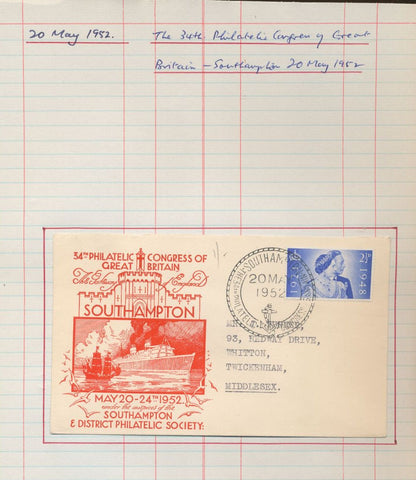 20 May 1952. The 34th Philatelic Congress of Great
Britain – Southampton 20 May 1952
34TH PHILATELIC CONGRESS OF
GREAT BRITAIN
SOUTHAMPTON
MAY 20-24TH 1952
under the auspices of the
SOUTHAMPTON
& DISTRICT PHILATELIC SOCIETY
SOUTHAM
20 MAY
1952
1923 2½D 1948
MR.
93, MEDWAY DRIVE,
WHITTON,
TWICKENHAM,
MIDDLESEX.